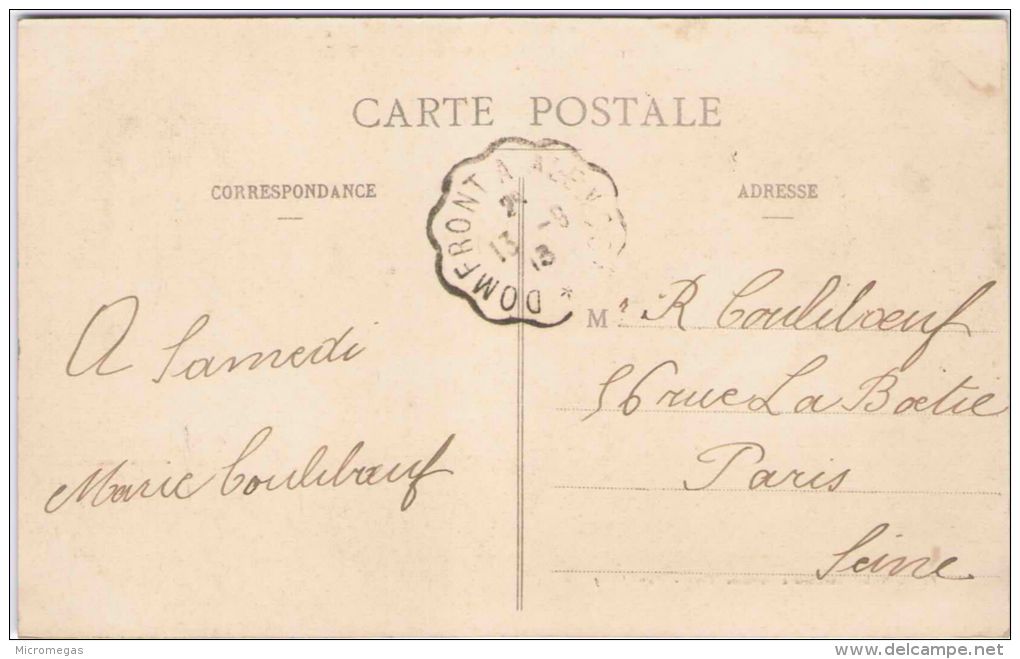 CARTE POSTALE
CORRESPONDANCE
ADRESSE
DOMFRONT A ALENCO
-8
13
13
A Samedi
Marie Coulibœuf
Mr R Coulibœuf
56 rue La Boetie
Paris
Seine
Micromegas
www.delcampe.net